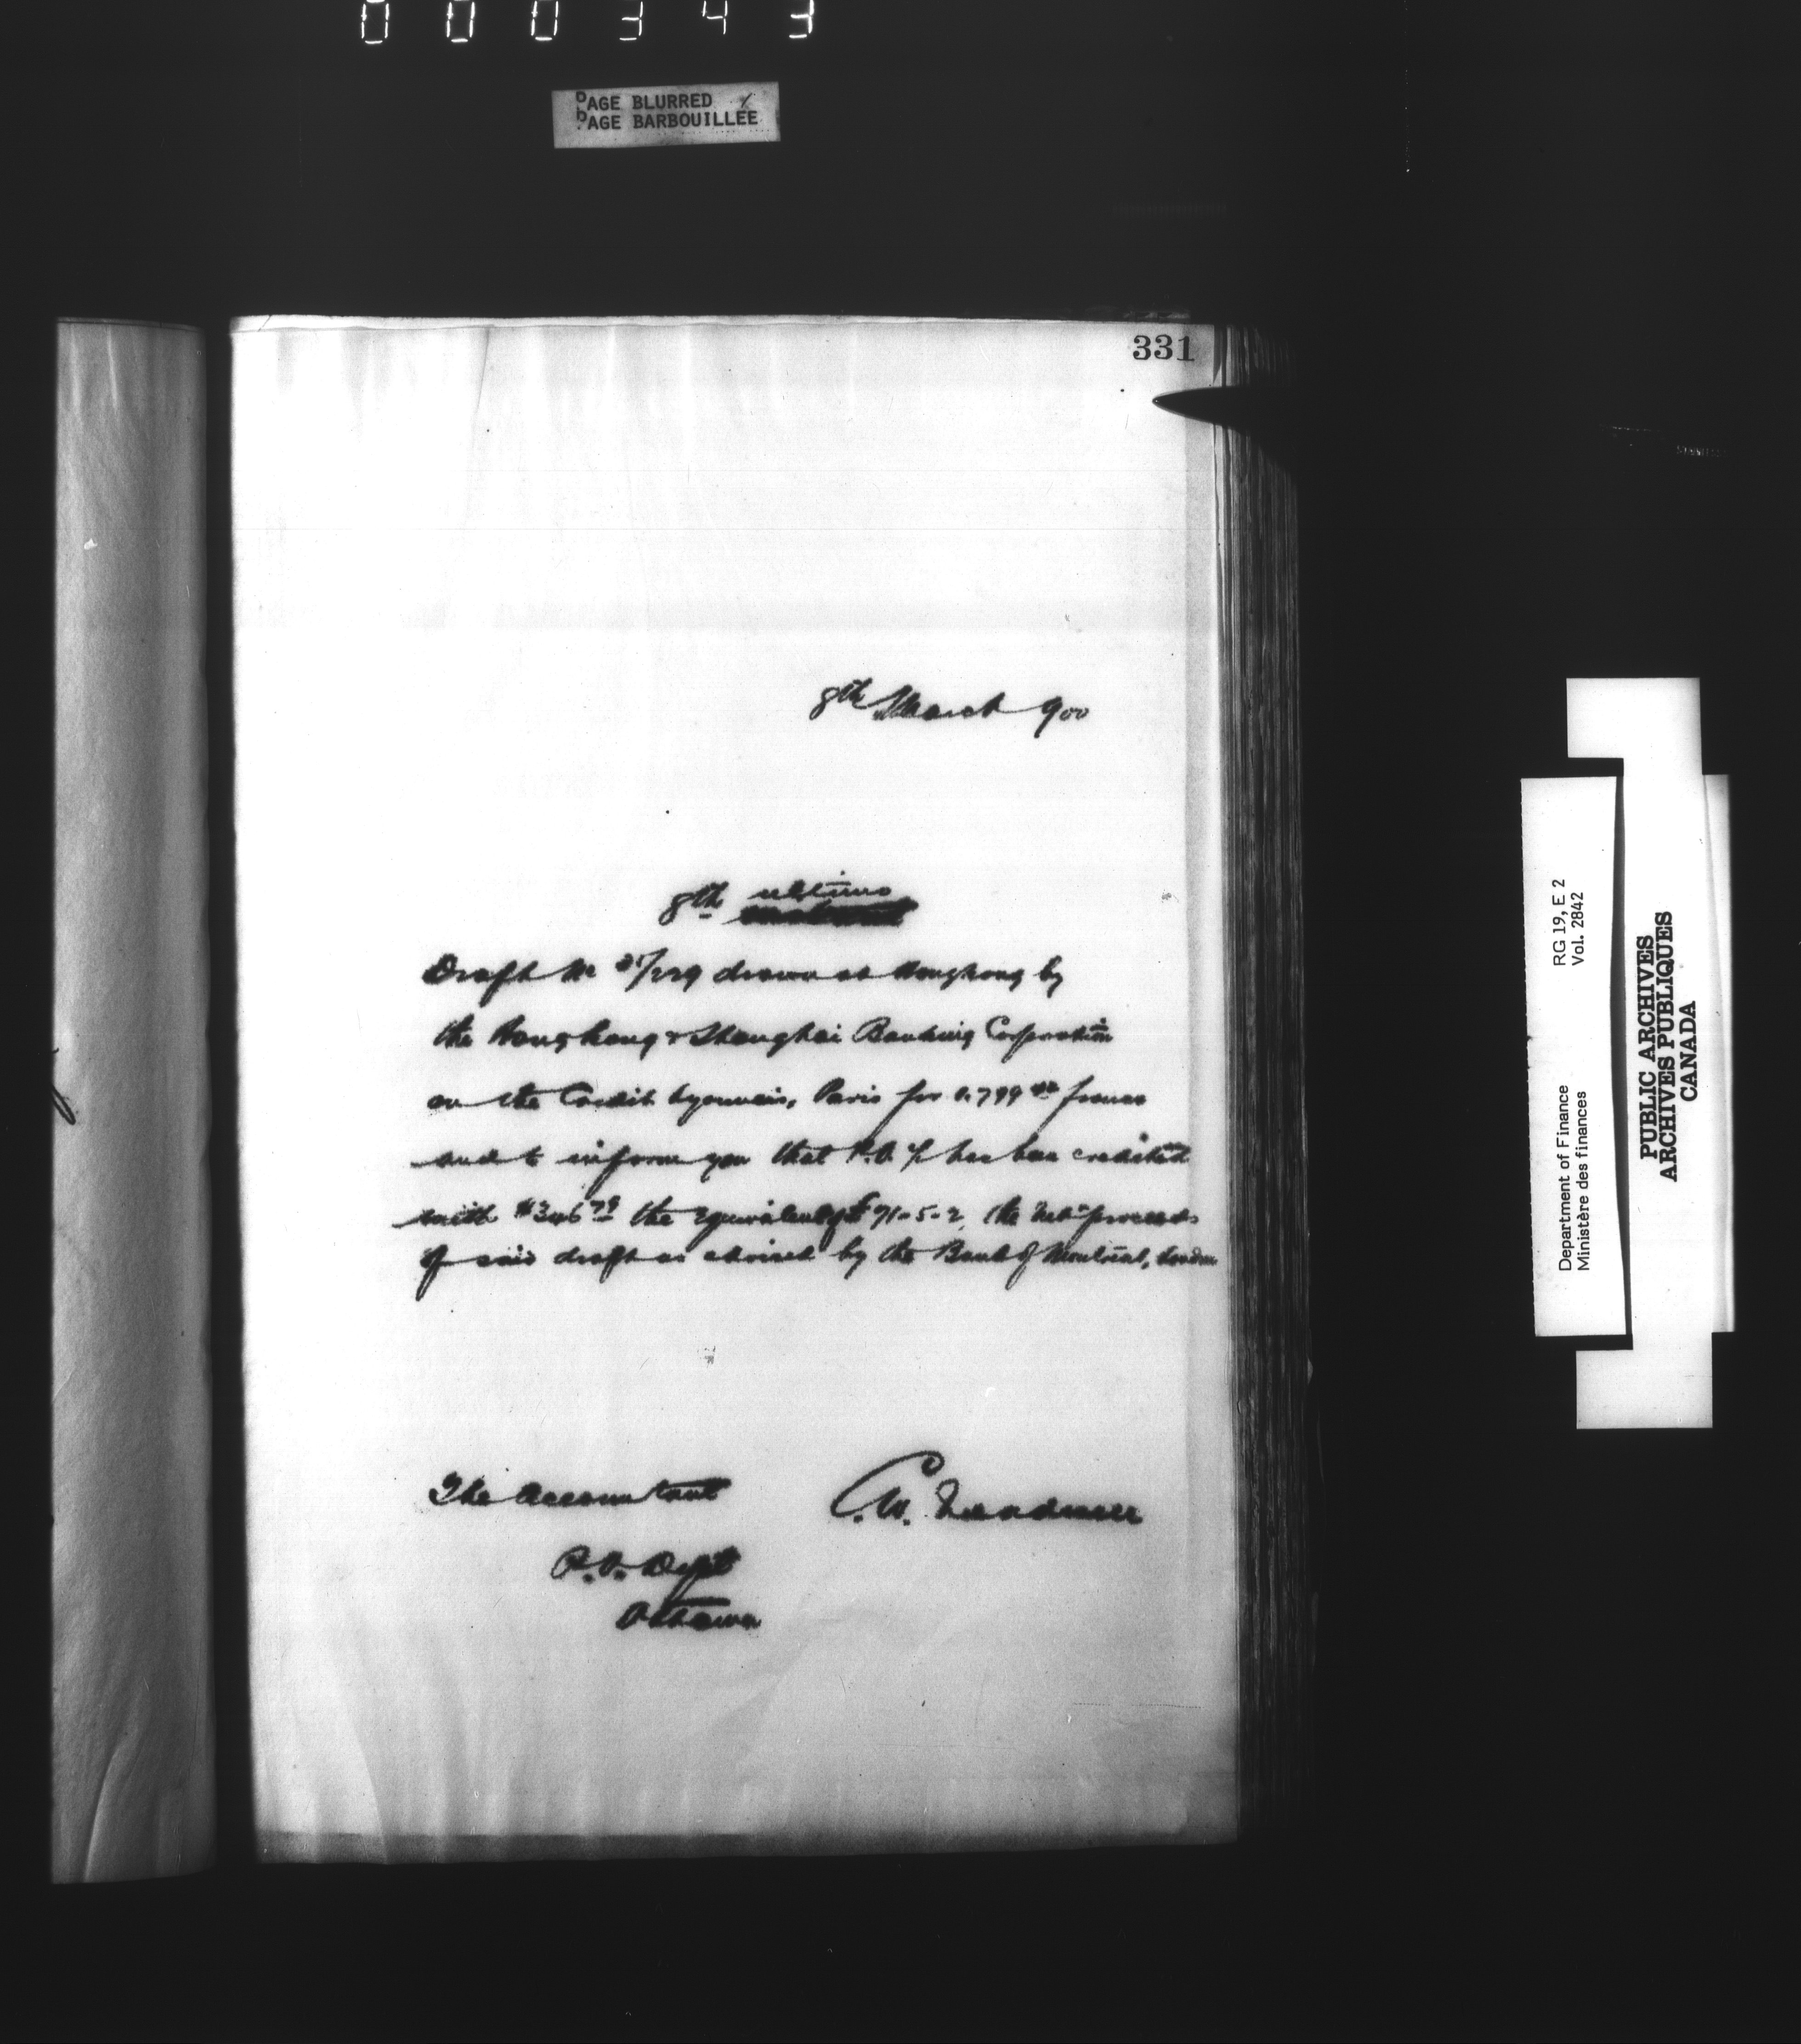 000343
PAGE BLURRED
PAGE BARBOUILLÉE
331
8th March 900
8th ultimo
Draft No /229 drawn at Hongkong by
the Hongkong & Shanghai Banking Corporation
on the Credit Lyonnais, Paris for francs
and to inform you that P.O. a/c has been credited
with $346 79 the equivalent of £71-5-2, the net proceeds
of said draft as advised by the Bank of Montreal, London
The Accountant
P.O. Dept
Ottawa
C.W. Treadwell
Department of Finance RG 19, E 2
Ministère des finances Vol. 2842
PUBLIC ARCHIVES
ARCHIVES PUBLIQUES
CANADA